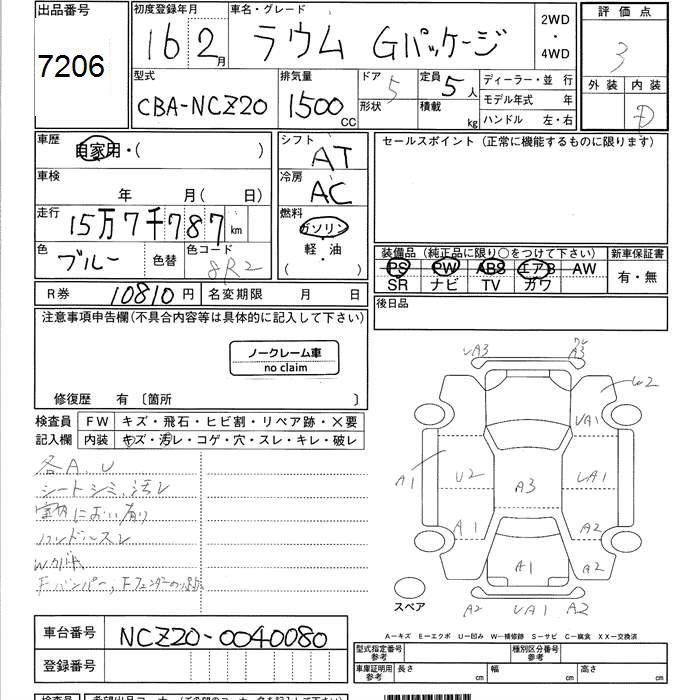 出品番号
7206
初度登録年月
16 2月
車名・グレード
ラウム Gパッケージ
2WD
・
4WD
評価点
3
外装 内装
D
型式
CBA-NCZ20
排気量
1500 CC
ドア 5
形状
定員 5人
積載 kg
ディーラー・並行
モデル年式 年
ハンドル 左・右
車歴
自家用・( )
車検
年 月( 日)
走行
15万7千787 km
色
ブルー
色替
色コード
8R2
シフト
AT
冷房
AC
燃料
ガソリン
軽・油
( )
セールスポイント (正常に機能するものに限ります)
装備品 (純正品に限り○をつけて下さい)
PS PW ABS エアB AW
SR ナビ TV カワ
新車保証書
有・無
後日品
R券 10810円
名変期限 月 日
注意事項申告欄(不具合内容等は具体的に記入して下さい)
ノークレーム車
no claim
修復歴 有 〔箇所 〕
検査員
記入欄
FW キズ・飛石・ヒビ割・リペア跡・×要
内装 キズ・汚レ・コゲ・穴・スレ・キレ・破レ
各A、U
シートシミ、汚レ
室内におい有り
ハンドルスレ
Wカバキ
UA3
W2
UA1
A1
U2
A3
UA1
A1
A2
A1
A2
A2
UA1
A2
スペア
A－キズ E－エクボ U－凹み W－補修跡 S－サビ C－腐食 XX－交換済
車台番号
NCZ20-0040080
登録番号
型式指定番号
参考
種別区分番号
参考
車庫証明用
参考
長さ cm
幅 cm
高さ cm